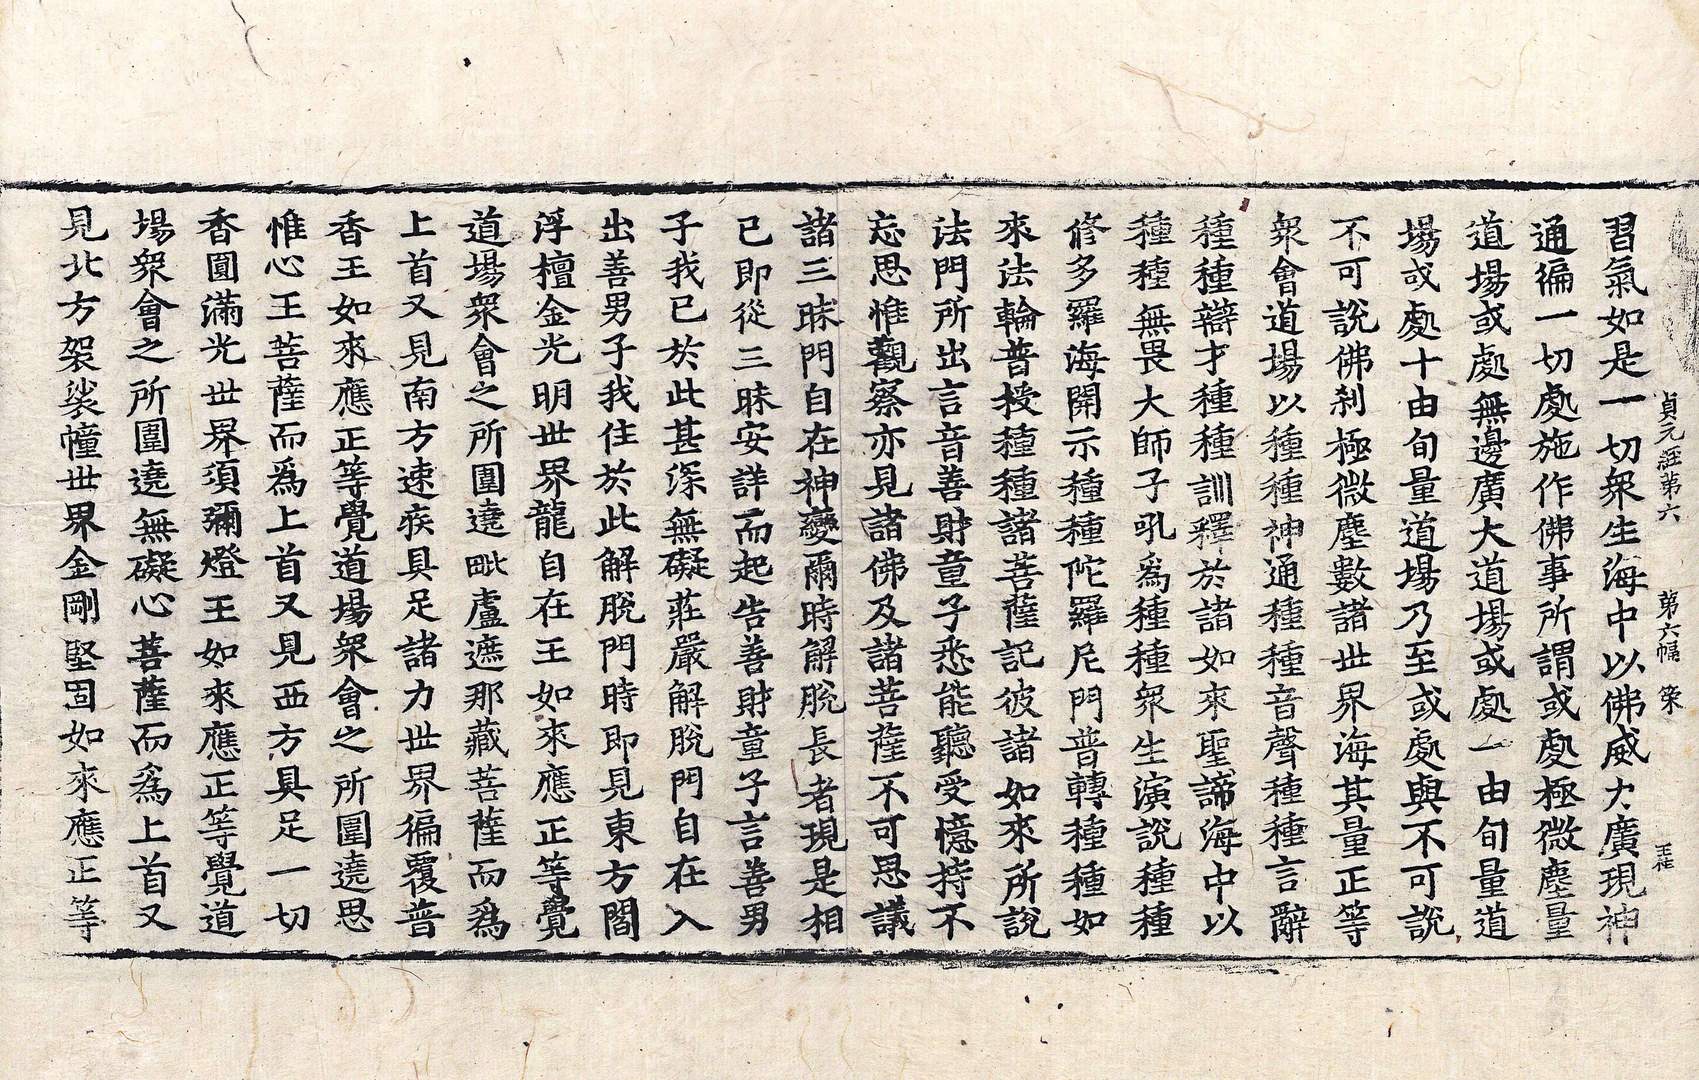 貞元経第六 第六幅 策 王桂
習氣如是一切衆生海中以佛威力廣現神
通徧一切處施作佛事所謂或處極微塵量
道場或處無邊廣大道場或處一由旬量道
場或處十由旬量道場乃至或處與不可說
不可說佛刹極微塵數諸世界海其量正等
衆會道場以種種神通種種音聲種種言辭
種種辯才種種訓釋於諸如來聖諦海中以
種種無畏大師子吼爲種種衆生演說種種
修多羅海開示種種陀羅尼門普轉種種如
來法輪普授種種諸菩薩記彼諸如來所說
法門所出言音善財童子悉能聽受憶持不
忘思惟觀察亦見諸佛及諸菩薩不可思議
諸三昧門自在神變爾時解脫長者現是相
已即從三昧安詳而起告善財童子言善男
子我已於此甚深無礙莊嚴解脫門自在入
出善男子我住於此解脫門時即見東方閻
浮檀金光明世界龍自在王如來應正等覺
道場衆會之所圍遶毗盧遮那藏菩薩而爲
上首又見南方速疾具足諸力世界徧覆普
香王如來應正等覺道場衆會之所圍遶思
惟心王菩薩而爲上首又見西方具足一切
香圓滿光世界須彌燈王如來應正等覺道
場衆會之所圍遶無礙心菩薩而爲上首又
見北方袈裟幢世界金剛堅固如來應正等